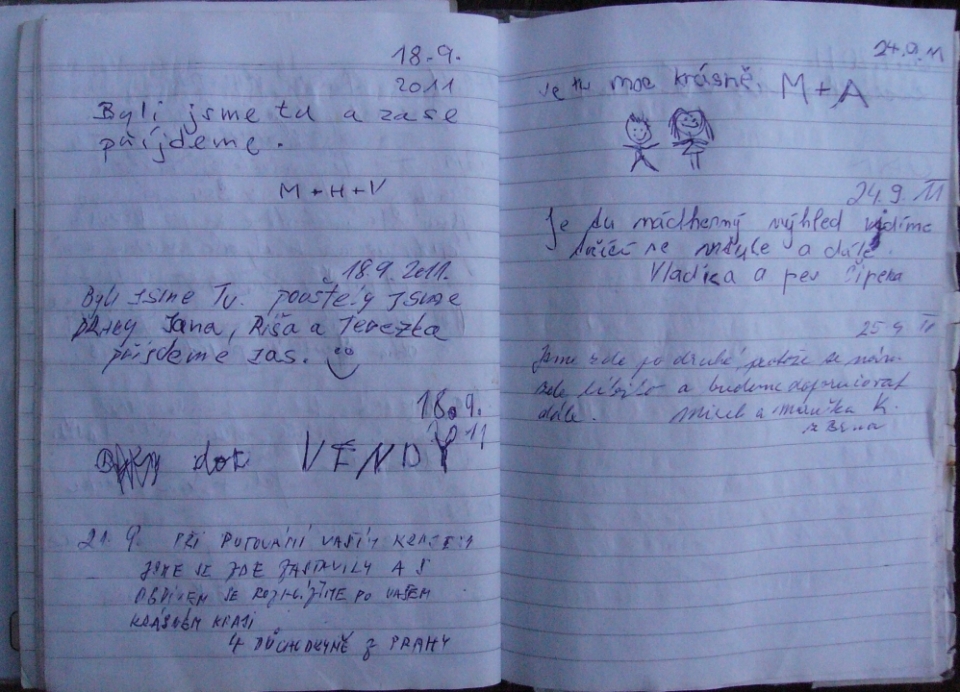 18.9.
2011
Byli jsme tu a zase
příjdeme.
M+H+V
18.9.2011.
Byli jsme Tu. pouštěly jsme
draky Jana, Ríša a Terezka
přijdeme zas.
18.9.
2011
VENDY
21. 9. PŘI PUTOVÁNÍ VAŠÍM KRAJEM
JSME SE ZDE ZASTAVILY A S
OBDIVEM SE ROZHLÍŽÍME PO VAŠEM
KRÁSNÉM KRAJI
4 DŮCHODKYNĚ Z PRAHY
24.9.11
Je tu moc krásně. M+A
24.9.11
Je tu nádherný výhled vidíme
a dále.
Vladka a pes
25.9 11
Jsme zde po druhé protože se nám
zde líbilo a budeme doporučovat
dále. Mirek a Maruška K.
z Brna